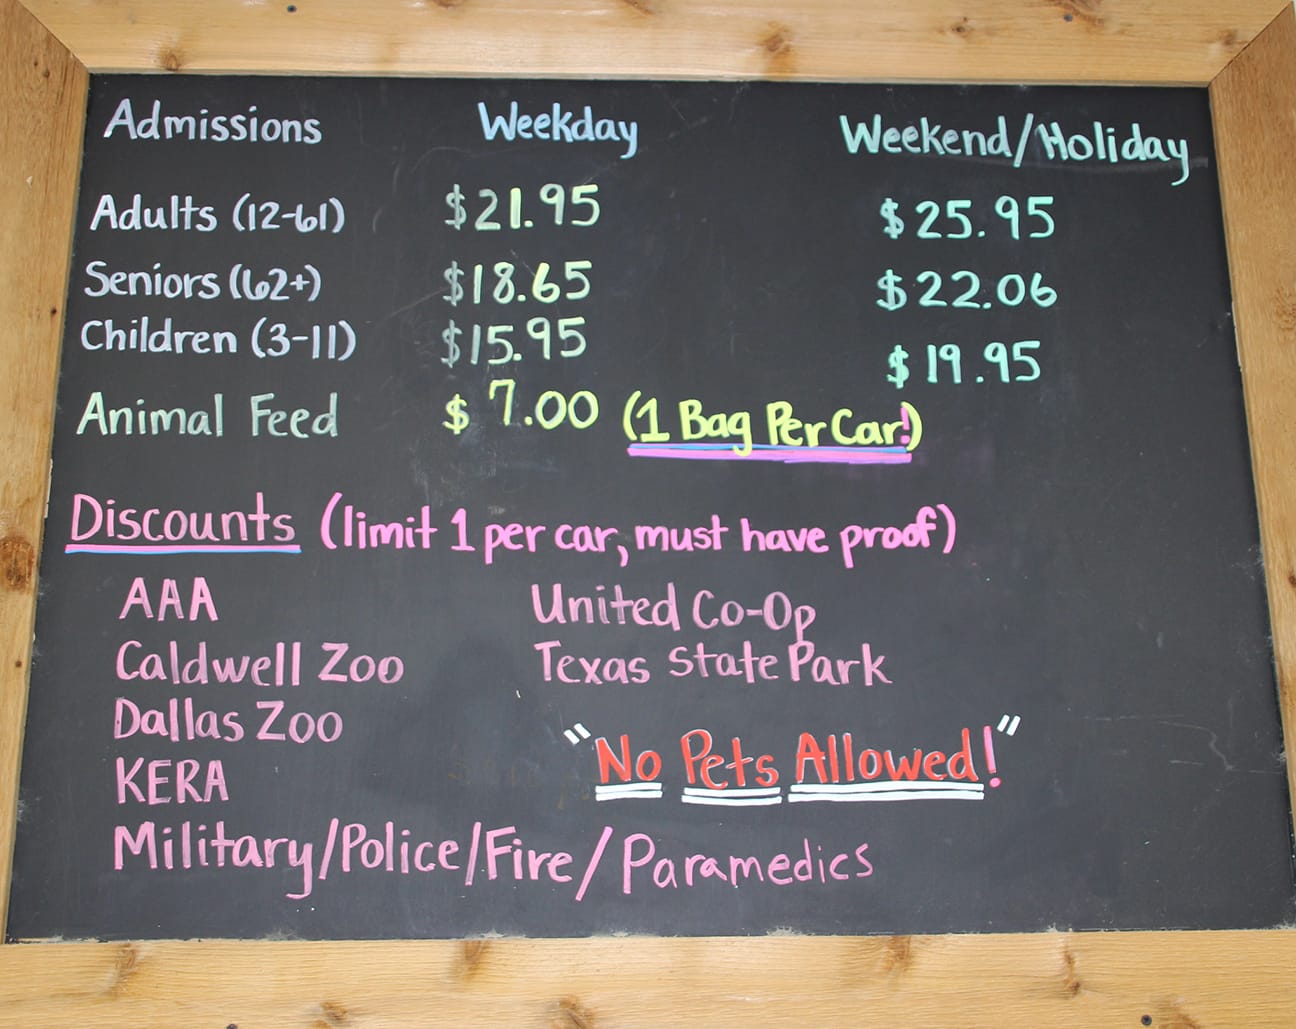 Admissions Weekday Weekend/Holiday
Adults (12-61) $21.95 $25.95
Seniors (62+) $18.65 $22.06
Children (3-11) $15.95 $19.95
Animal Feed $ 7.00 (1 Bag Per Car!)
Discounts (limit 1 per car, must have proof)
AAA United Co-Op
Caldwell Zoo Texas State Park
Dallas Zoo
"No Pets Allowed!"
KERA
Military/Police/Fire/Paramedics